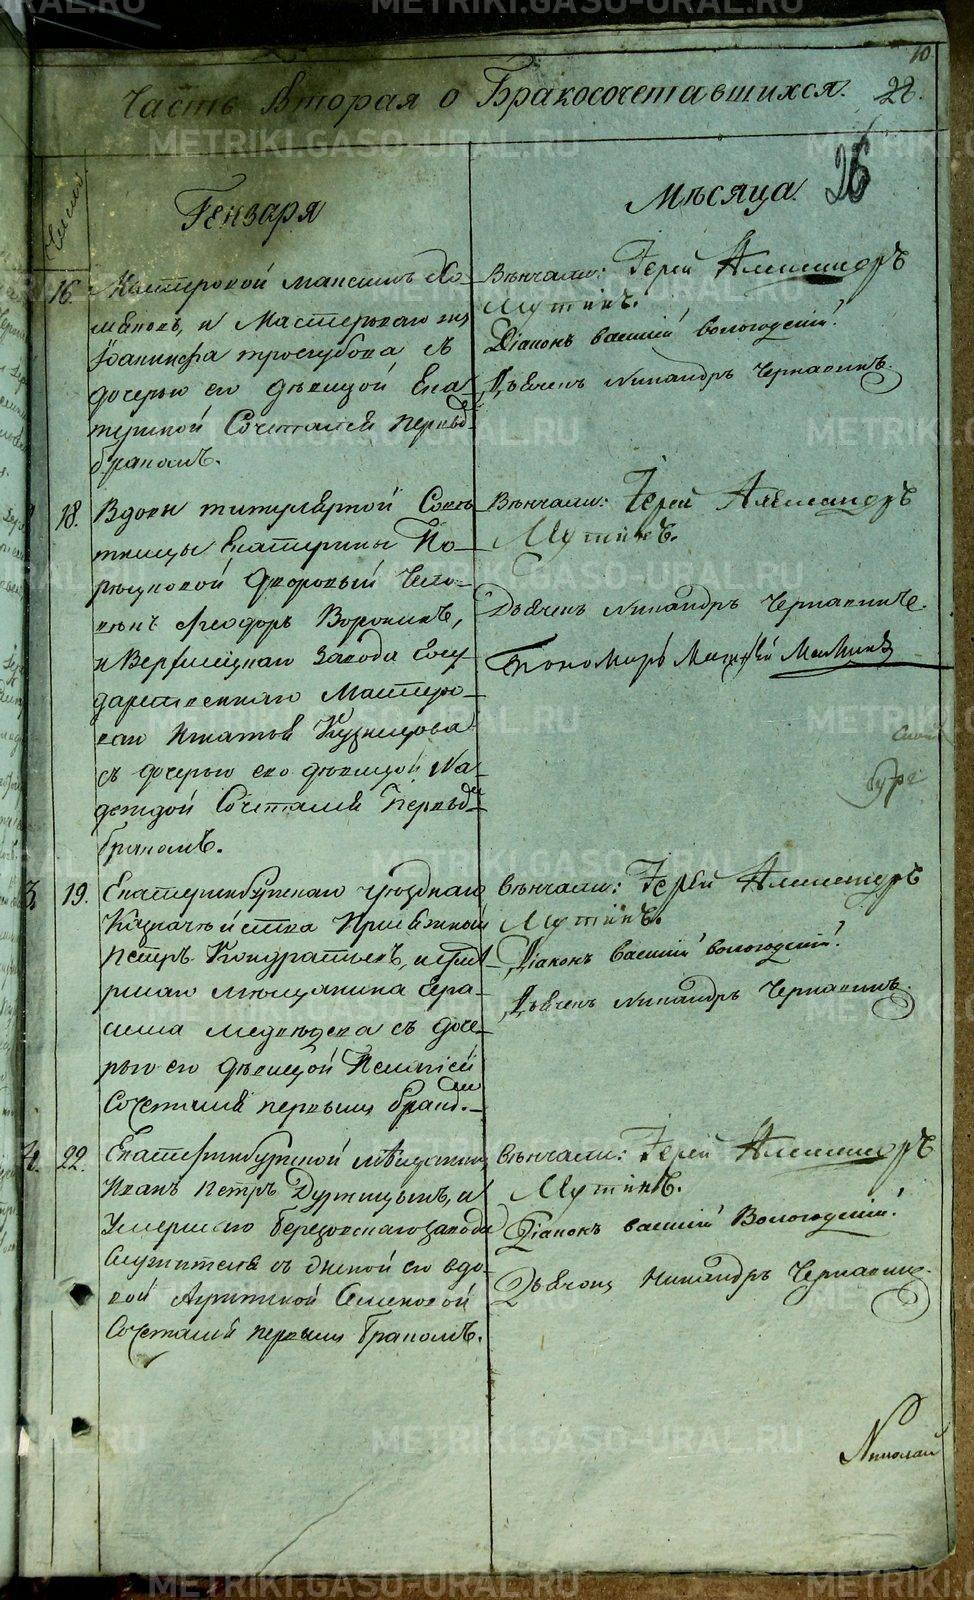 10
Часть Вторая о Бракосочетавшихся. 22.
26
Число
Генваря
Мѣсяца
16.
Мастеровой Максимъ Хо-
мяковъ, и Мастероваго
дочерью его дѣвицой Ека-
Сочетался первымъ
бракомъ.
Вѣнчали: Іерей Александръ
Мутинъ.
Діаконъ Василій Вологодскій.
Дьячекъ Никандръ Чернавинъ.
18.
Вдовы титулярной Совѣ
тницы Екатерины По-
Дворовый Чело-
вѣкъ Ѳеодоръ Воронинъ,
и Верхисецкаго Завода Госу
дарственнаго Мастеро-
ваго Игнатья Кузнецова
съ дочерью его дѣвицой На-
деждой Сочетался Первымъ
бракомъ.
Вѣнчали: Іерей Александръ
Мутинъ.
Дьячекъ Никандръ Чернавинъ.
Пономарь
3.
19.
Екатеринбургскаго уѣзднаго
Казначейства Присяжный
Петръ Кондратьевъ, и
мѣщанина Гера-
сима Медвѣдева съ доче-
рью его дѣвицой Пелагіей
Сочетался первымъ бракомъ.
Вѣнчали: Іерей Александръ
Мутинъ.
Діаконъ Василій Вологодскій.
Дьячекъ Никандръ Чернавинъ.
4.
22.
Екатеринбургской мѣщанинъ
Иванъ Петръ и
Умершаго Березовскаго завода
Служителя съ женой его вдо-
вой Семеновой
Сочетался первымъ бракомъ.
Вѣнчали: Іерей Александръ
Мутинъ.
Діаконъ Василій Вологодскій.
Дьячекъ Никандръ Чернавинъ.
Николай
METRIKI.GASO-URAL.RU